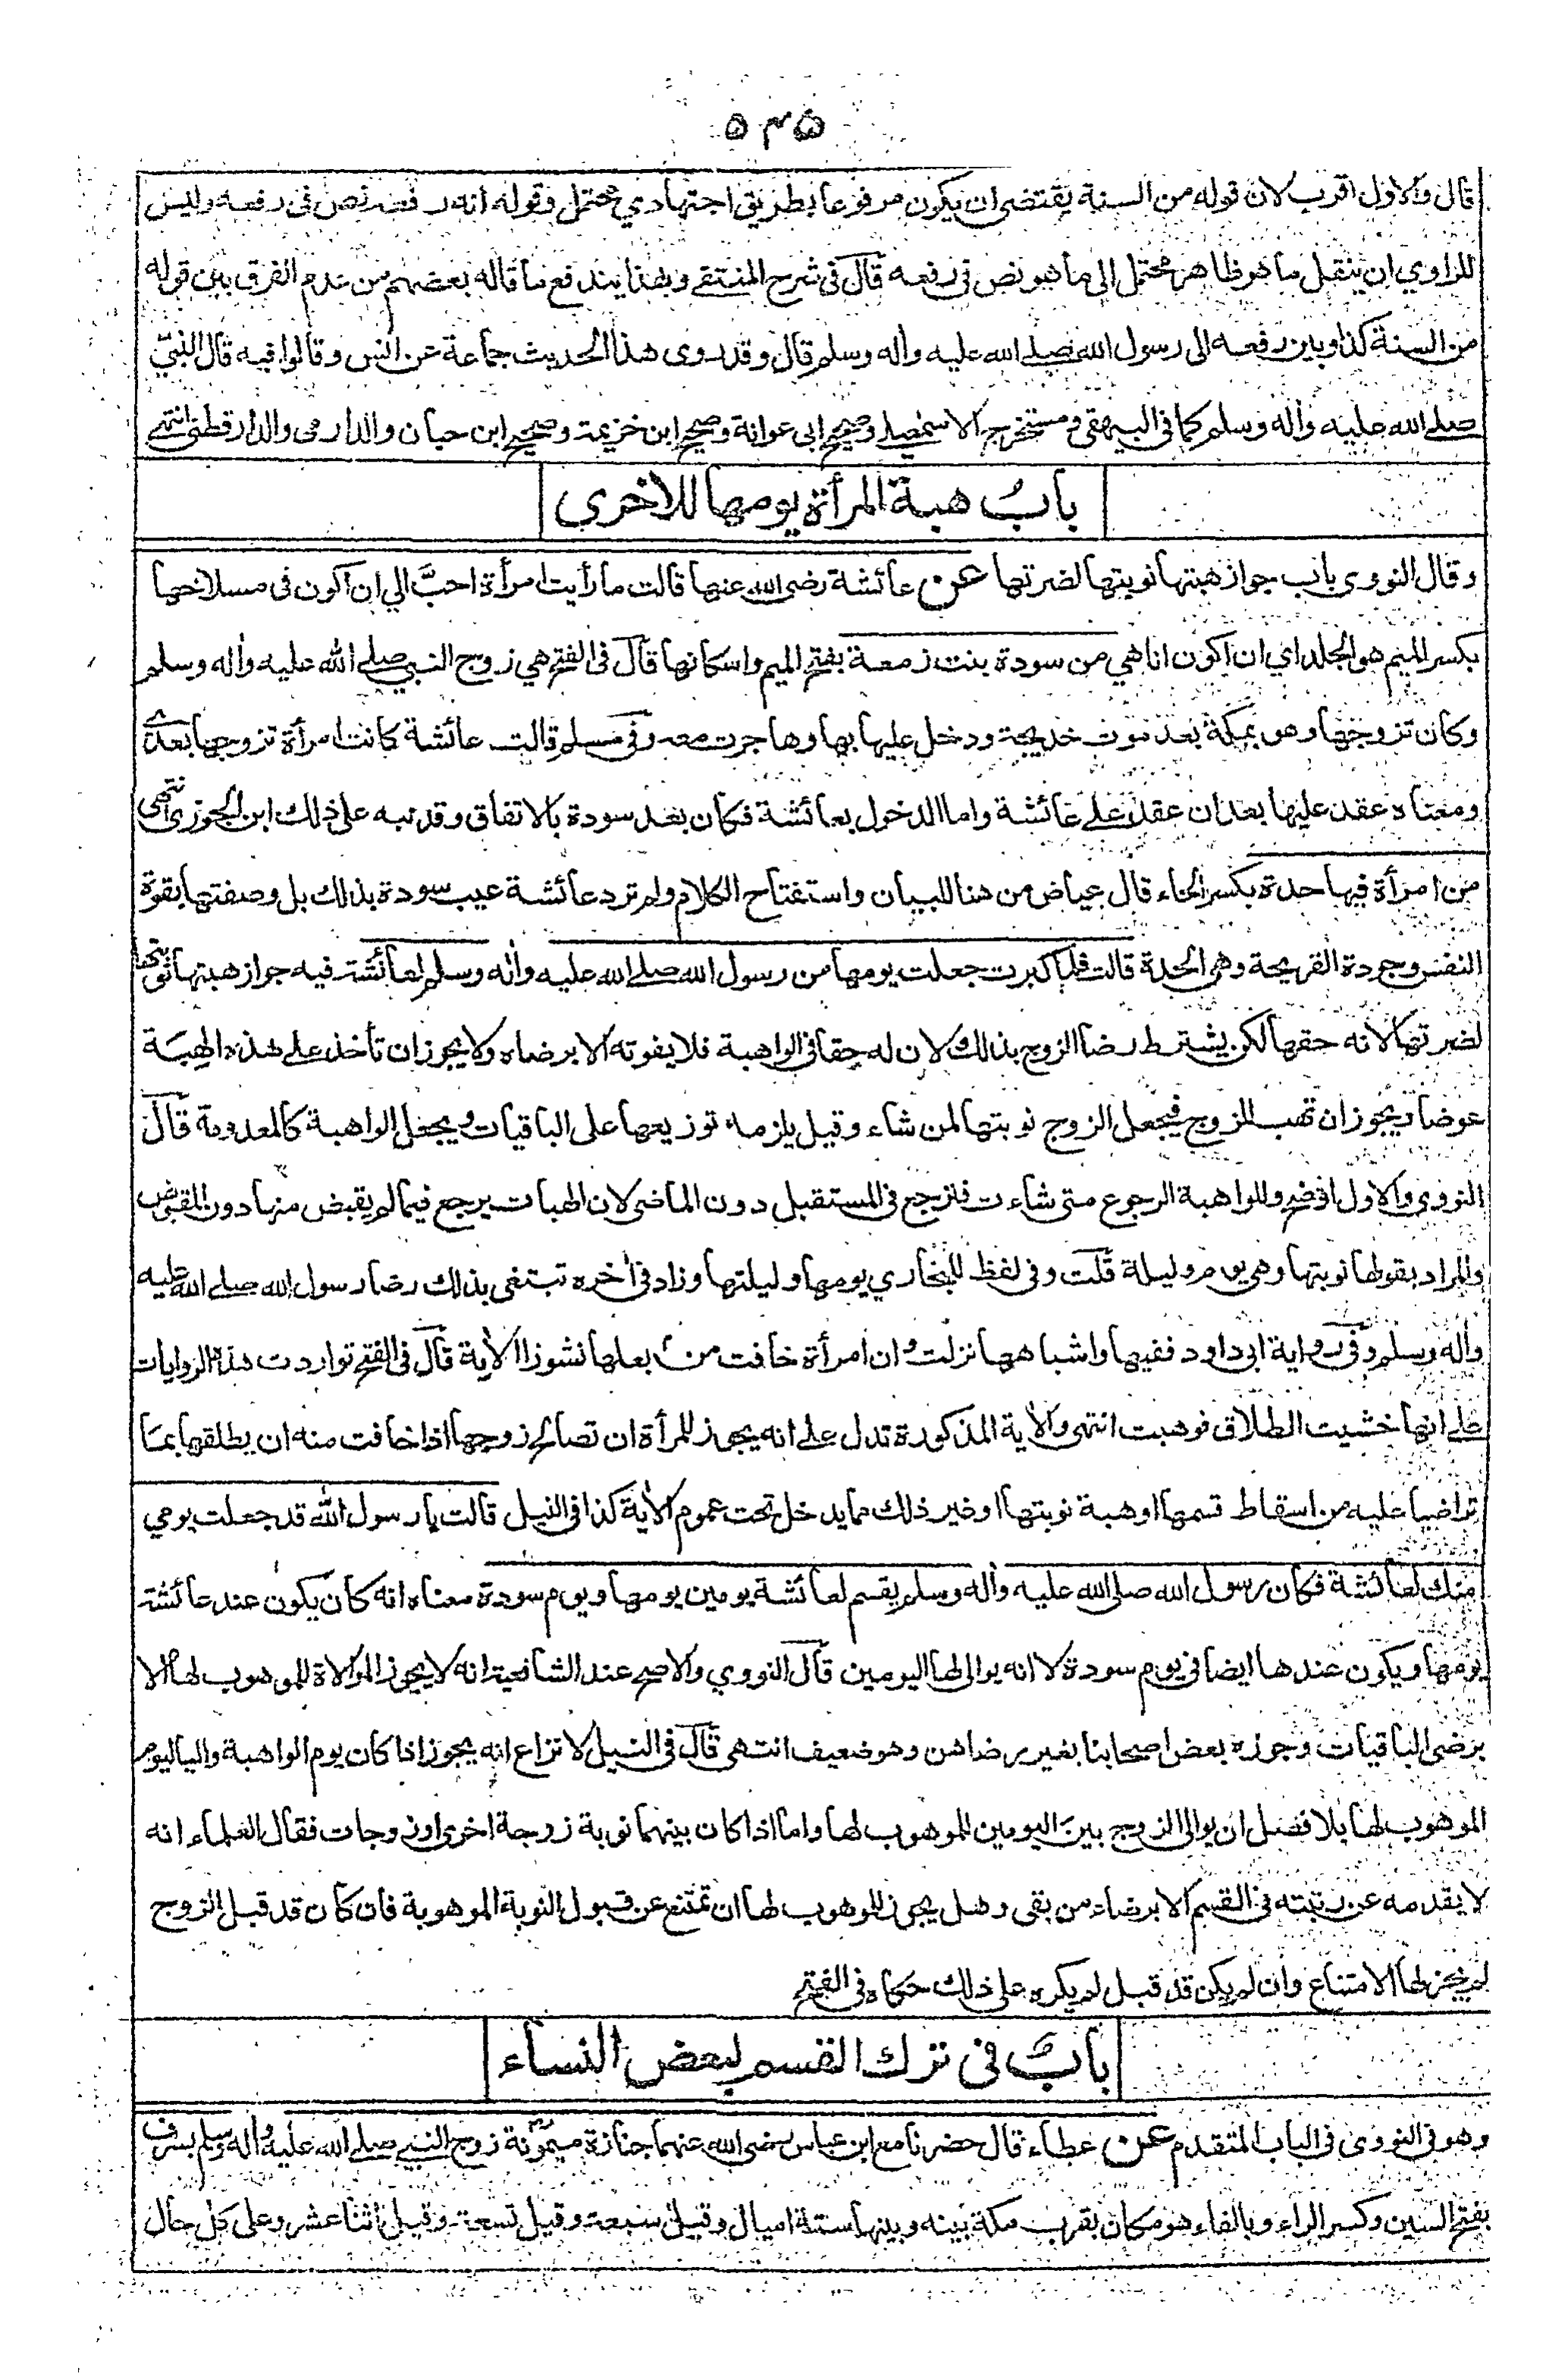 ٥٣٥
قال والاول اقرب لان قوله من السنة يقتضى ان يكون مرفوعا بطريق اجتهادي محتمل وقوله انه رفعه نص فى رفعه وليس
للراوي ان ينقل ما هو ظاهر محتمل الى ما هو نص فى رفعه قال فى شرح المنتقى وبهذا يندفع ما قاله بعضهم من عدم الفرق بين قوله
من السنة كذا وبين رفعه الى رسول الله صلى الله عليه وأله وسلم قال وقد روى هذا الحديث جماعة عن انس وقالوا فيه قال النبيّ
صلى الله عليه وأله وسلم كما فى البيهقي ومستخرج الاسمعيلي وصحيح ابى عوانة وصحيح ابن خزيمة وصحيح ابن حبان والدارمى والدارقطنى انتهى
بابُ هبة المرأة يومها للاخرى
وقال النووى باب جواز هبتها نوبتها لضرتها عن عائشة رضى الله عنها قالت ما رأيت امرأة احبَّ الي ان اكون فى مسلاخها
بكسر الميم هو الجلد اي ان اكون انا هي من سودة بنت زمعة بفتح الميم واسكانها قال فى الفتح هي زوج النبي صلى الله عليه وأله وسلم
وكان تزوجها وهو بمكة بعد موت خديجة ودخل عليها بها وهاجرت معه وفى مسلم قالت عائشة كانت امرأة تزوجها بعدى
ومعناه عقد عليها بعد ان عقد على عائشة واما الدخول بعائشة فكان بعد سودة بالاتفاق وقد نبه على ذلك ابن الجوزى انتهى
من امرأة فيها حدة بكسر الحاء قال عياض من هنا للبيان واستفتاح الكلام ولم ترد عائشة عيب سودة بذلك بل وصفتها بقوة
النفس وجودة القريحة وهى الحدة قالت فلما كبرت جعلت يومها من رسول الله صلى الله عليه وأله وسلم لعائشة فيه جواز هبتها نوبتها
لضرتها لانه حقها لكن يشترط رضا الزوج بذلك لان له حقا فى الواهبة فلا يفوته الا برضاه ولا يجوز ان تأخذ على هذه الهبة
عوضا ويجوز ان تهب للزوج فيجعل الزوج نوبتها لمن شاء وقيل يلزمه توزيعها على الباقيات ويجعل الواهبة كالمعدومة قال
النووي والاول اصح وللواهبة الرجوع متى شاءت فترجع فى المستقبل دون الماضى لان الهبات يرجع فيما لم يقبض منها دون المقبوض
والمراد بقولها نوبتها وهى يوم وليلة قلت وفى لفظ للبخاري يومها وليلتها وزاد فى أخره تبتغى بذلك رضا رسول الله صلى الله عليه
وأله وسلم وفى رواية ابى داود ففيها واشباهها نزلت وان امرأة خافت من بعلها نشوزا الأية قال فى الفتح تواردت هذه الروايات
على انها خشيت الطلاق فوهبت انتهى والأية المذكورة تدل على انه يجوز للمرأة ان تصالح زوجها اذا خافت منه ان يطلقها بما
تراضيا عليه من اسقاط قسمها او هبة نوبتها او غير ذلك مما يدخل تحت عموم الأية كذا فى النيل قالت يا رسول الله قد جعلت يومي
منك لعائشة فكان رسول الله صلى الله عليه وأله وسلم يقسم لعائشة يومين يومها ويوم سودة معناه انه كان يكون عند عائشة
يومها ويكون عندها ايضا فى يوم سودة لا انه يوالى لها اليومين قال النووي والاصح عند الشافعية انه لا يجوز الموالاة للموهوب لها الا
برضى الباقيات وجوزه بعض اصحابنا بغير رضاهن وهو ضعيف انتهى قال فى النيل لا نزاع انه يجوز اذا كان يوم الواهبة واليا ليوم
الموهوب لها بلا فصل ان يوالى الزوج بين اليومين للموهوب لها واما اذا كان بينهما نوبة زوجة اخرى او زوجات فقال العلماء انه
لا يقدمه عن رتبته فى القسم الا برضاء من بقى وهل يجوز للموهوب لها ان تمتنع عن قبول النوبة الموهوبة فان كان قد قبل الزوج
لم يجز لها الامتناع وان لم يكن قد قبل لم يكره على ذلك حكاه فى الفتح
بابٌ فى ترك القسم لبعض النساء
وهو فى النووى فى الباب المتقدم عن عطاء قال حضرنا مع ابن عباس رضى الله عنهما جنازة ميمونة زوج النبي صلى الله عليه وأله وسلم بسرف
بفتح السين وكسر الراء وبالفاء هو مكان بقرب مكة بينه وبينها ستة اميال وقيل سبعة وقيل تسعة وقيل اثنا عشر وعلى كل حال